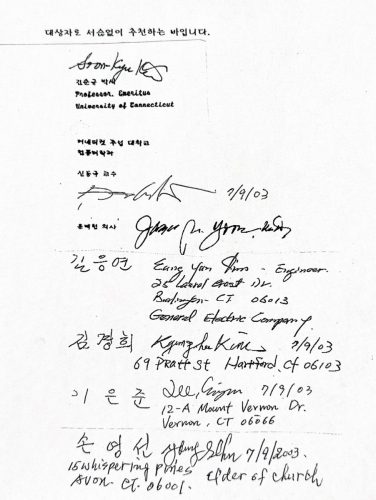 대상자로 서슴없이 추천하는 바입니다.
Soon-Kyu Kim
김순규 박사
Professor, Emeritus
University of Connecticut
커네티컷 주립 대학교
컴퓨터학과
신동구 교수
7/9/03
윤 의사
James Yoon
김응연 Eung Yun Kim - Engineer
25 Laurel Crest Dr.
Burlington CT 06013
General Electric Company
김경희 Kyunghee Kim 7/9/03
69 Pratt St Hartford, Ct 06103
이은준 Lee, 7/9/03
12-A Mount Vernon Dr.
Vernon, CT 06066
손영선 Sohn 7/9/2003.
15 whispering pines Elder of church
AVON. CT. 06001.